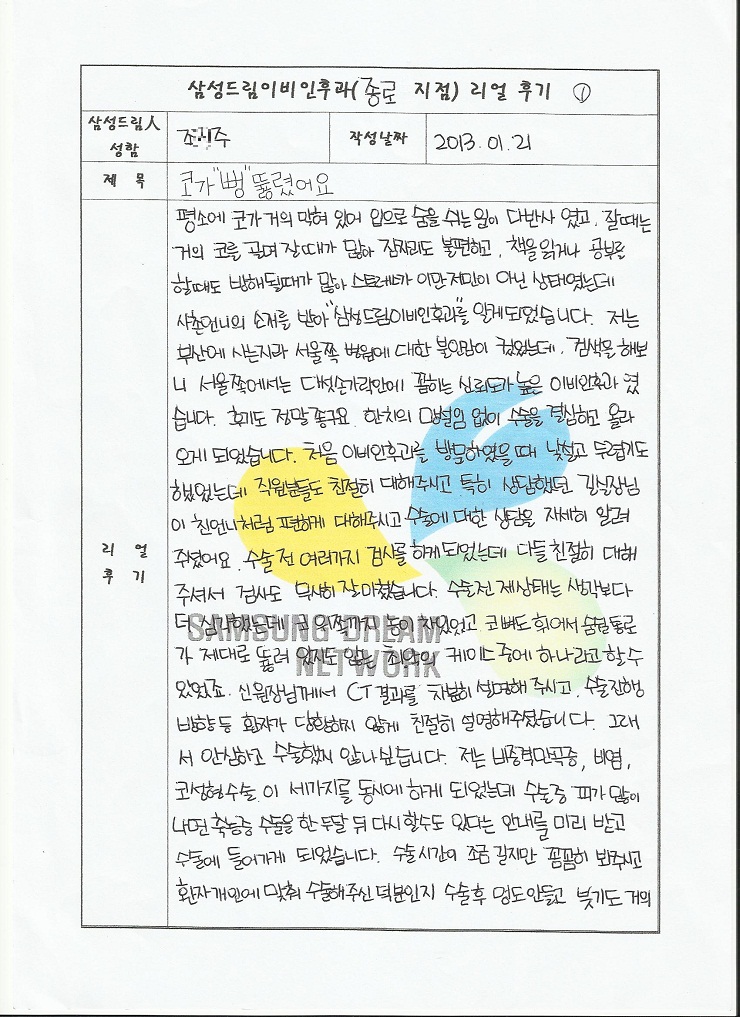 삼성드림이비인후과(종로 지점) 리얼 후기 ①
삼성드림人
성함
작성날짜
2013. 01. 21
제 목
코가 "뻥" 뚫렸어요
리 얼
후 기
평소에 코가 거의 막혀 있어 입으로 숨을 쉬는 일이 다반사 였고, 잘때는
거의 코를 골며 잘때가 많아 잠자리도 불편하고, 책을 읽거나 공부를
할때도 방해될때가 많아 스트레스가 이만저만이 아닌 상태였는데
사촌언니의 소개를 받아 "삼성드림이비인후과"를 알게되었습니다. 저는
부산에 사는지라 서울쪽 병원에 대한 불안감이 컸었는데, 검색을 해보
니 서울쪽에서는 다섯손가락안에 꼽히는 신뢰도가 높은 이비인후과 였
습니다. 후기도 정말 좋구요. 한치의 망설임 없이 수술을 결심하고 올라
오게 되었습니다. 처음 이비인후과를 방문하였을 때 낯설고 두렵기도
했었는데 직원분들도 친절히 대해주시고 특히 상담했던 김실장님
이 친언니처럼 편하게 대해주시고 수술에 대한 상담을 자세히 알려
주셨어요. 수술 전 여러가지 검사를 하게되었는데 다들 친절히 대해
주셔서 검사도 무사히 잘 마쳤습니다. 수술전 제상태는 생각보다
더 심각했는데 코 안쪽까지 농이 차있었고 코뼈도 휘어서 숨쉴 통로
가 제대로 뚫려 있지도 않는 최악의 케이스 중에 하나라고 할 수
있었죠. 신원장님께서 CT 결과를 차분히 설명해 주시고, 수술진행
방향 등 환자가 당황하지 않게 친절히 설명해주셨습니다. 그래
서 안심하고 수술했지 않나 싶습니다. 저는 비중격만곡증, 비염,
코성형수술 이 세가지를 동시에 하게 되었는데 수술중 피가 많이
나면 축농증 수술을 한 두달 뒤 다시 할수도 있다는 안내를 미리 받고
수술에 들어가게 되었습니다. 수술시간이 조금 길지만 꼼꼼히 봐주시고
환자개인에 맞춰 수술해주신 덕분인지 수술후 멍도 안들고 붓기도 거의
SAMSUNG DREAM
NETWORK